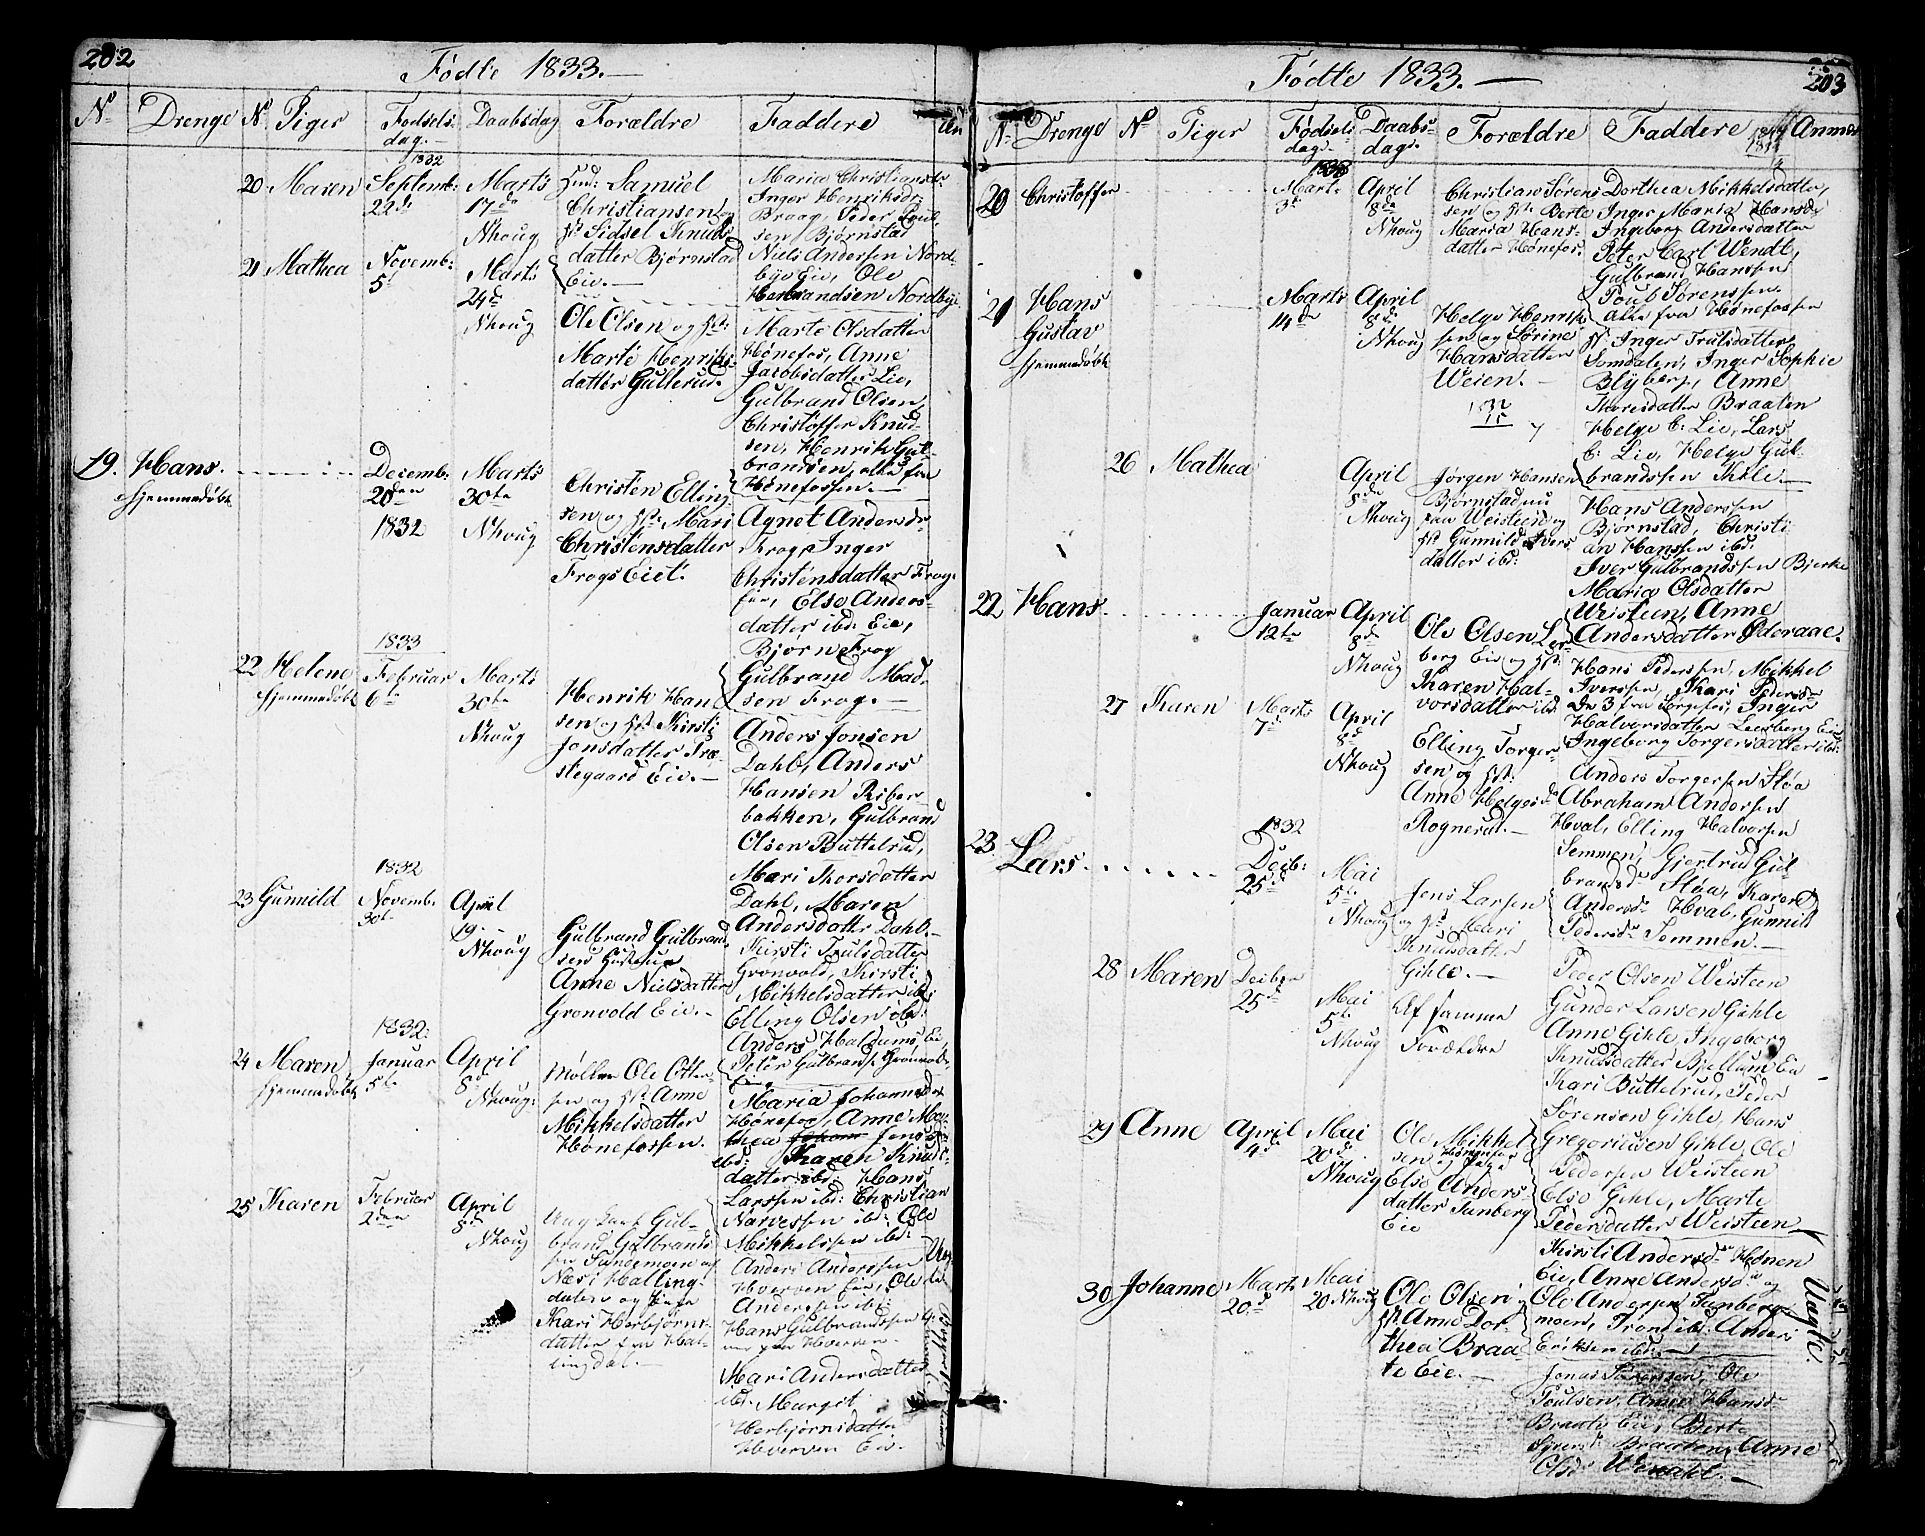 202
Födte 1833.—
No Drenge No Piger Fødselsdag.— Daabsdag Forældre Faddere
20 Maren
1832
Septemb:
22de
Marts
17de
Nhoug
Huus: Samuel
Christiansen og
Sidsel Knuds
datter Bjørnstad
Eie.—
Maria Christiansdr
Inger Henriksd
Braag, Peder Poul
sen Bjørnstad
Niels Andersen Nord
bye Eie, Ole
Herbrandsen Nordbye
21 Mathea
Novemb:
5t
Marts
24de
Nhoug
Ole Olsen og
Marte Henriks
datter Gullerud.
Marte Olsdatter
Hønefos, Anne
Jacobsdatter Lie,
Gulbrand Olsen
Christoffer Knud-
sen, Henrik Gul-
brandsen, alle fra
Hønefossen.—
19. Hans.
hjemmedøbt
Decemb:
20den
1832
Marts
30te
Nhoug
Christen Elling
sen og Mari
Christensdatter
Frogs Eiet.
Agnet Andersdr
Frog, Inger
Christensdatter Frog
Eie, Else Anders-
datter ibd: Eie,
Bjørn Frog
Gulbrand Mad-
sen Frog.—
22 Helene
hjemmedøbt
1833
Februar
6te
Marts
30te
Nhoug
Henrik Han
sen og Kirsti
Jonsdatter Træ-
stegaard Eie.—
Anders Jonsen
Dahl, Anders
Hansen Riber-
bakken, Gulbrand
Olsen Buttelrud,
Mari Thorsdatter
Dahl, Maren
Andersdatter Dahl.—
23 Gunnild
1832
Novemb:
30te
April
19.
Nhoug
Gulbrand Gulbrand
sen
Anne Nielsdatter
Gronvold Eie.—
Kirsti Trulsdatter
Gronvold, Kirsti
Mikkelsdatter ibd:
Elling Olsen ibd:
Anders Haldums Eie,
Peter Gulbrands. Grønvold
Eie
24 Maren
hjemmedøbt
1832:
Januar
5te
April
8d
Nhoug:
Møller Ole Otter-
sen og Anne
Mikkelsdatter
Hønefossen.
Maria Johannesdr
Hønefos, Anne Ma-
thea Jens
ibd: Karen Knuds-
datter ibd: Hans
Larssen ibd: Christian
Narvessen ibd: Ole
Mikkelssen ibd:
25 Karen
Februar
2den
April
8d
Nhoug
Ung Karl Gul-
brand Gulbrands
sen Sundemoen af
Næs i Halling-
dalen og Pige
Kari Herbjørns-
datter fra Hal-
lingdal.—
Anders Anderssen
Hverven Eie, Ole
Andersen ibd:
Hans Gulbrandssen
Hverven
Mari Andersdatter
ibd: Margit
Herbjørnsdatter
Hverven Eie.
203
Födte 1833.—
No Drenge No Piger Fødselsdag. Daabsdag. Forældre Faddere Anmer
20 Christoffer
1833
Marts
3de
April
8de
Nhoug
Christian Sørens
sen og Berte
Maria Hans-
datter Hønefos.
Dorthea Mikkelsdatter,
Inger Maria Hansdr
Ingeborg Andersdatter
Peter Carl Wendt,
Gulbrand Hanssen
Poul Sørenssen
alle fra Hønefossen
21 Hans
Gustav
hjemmedøbt
Marts
14de
April
8de
Nhoug
Helge Henrik
sen og Sørine
Hansdatter
Weien.—
Inger Trulsdatter
Somdalen, Inger Sophie
Blyberg, Anne
Thoresdatter Braaten
Helge E: Lie, Lars
E: Lie, Helge Gul-
brandssen Kihle.—
26 Mathea
April
8de
Nhoug
Jørgen Hansen
Bjørnstad nu
paa Weisteen og
Gunnild Ivers
datter ibd:
Hans Anderssen
Bjørnstad, Christi
an Hanssen ibd:
Iver Gulbrandssen Bjerke
Maria Olsdatter
Weisteen, Anne
Andersdatter Oderaae.
22 Hans.
Januar
12te
April
8d
Nhoug
Ole Olsen Ler-
berg Eie og
Karen Hal-
vorsdatter ibd
Hans Pederssen, Mikkel
Iverssen, Kari Pedersdr
De 3 fra Børgefos, Inger
Halvorsdatter Leerberg Eie
Ingeborg Torgersdatter ibd:
27 Karen
Marts
7de
April
8d
Nhoug
Elling Torger-
sen og
Anne Helgesdr
Rognerud.—
Anders Torgersen Støa
Abraham Andersen
Hval, Elling Halvorsen
Semmen, Gjertrud Gul-
brandsdr Støa, Karen
Andersdr Hval, Gunnild
Pedersdr Semmen.—
23. Lars.
1832
Decb:
25de
Mai
5te
Nhoug
Jens Larsen
og Mari
Knudsdatter
Gihle.—
Peder Olsen Weisteen
Gunder Larsen Gihle
Anne Gihle, Ingeborg
Knudsdatter Bjellum Eie
Kari Buttelrud, Peder
Sørensen Gihle, Hans
Gregoriussen Gihle, Ole
Pedersen Weisteen
Else Gihle, Marte
Pedersdatter Weisteen
28 Maren
Decber
25de
Mai
5te
Nhoug
Af samme
Forældre
29 Anne
April
4de
Mai
20de
Nhoug
Ole Mikkel
sen Hønefos
og Pige
Else Anders-
datter Tanberg
Eie
Kirsti Andersdr Hønen
Eie, Anne Andersdr og
Ole Andersen Tanberg-
moen, Trond ibd: Anders
Eriksen ibd:—
Uægte.
30 Johanne
Marts
20d
Mai
20 Nhoug
Ole Olsen
Anne Dor-
thea Braa-
te Eie.—
Jonas Sørenssen, Ole
Poulsen, Anne Hansdr
Braate Eie, Berte
Syversdr Braaten, Anne
Olsdr Wendahl.—